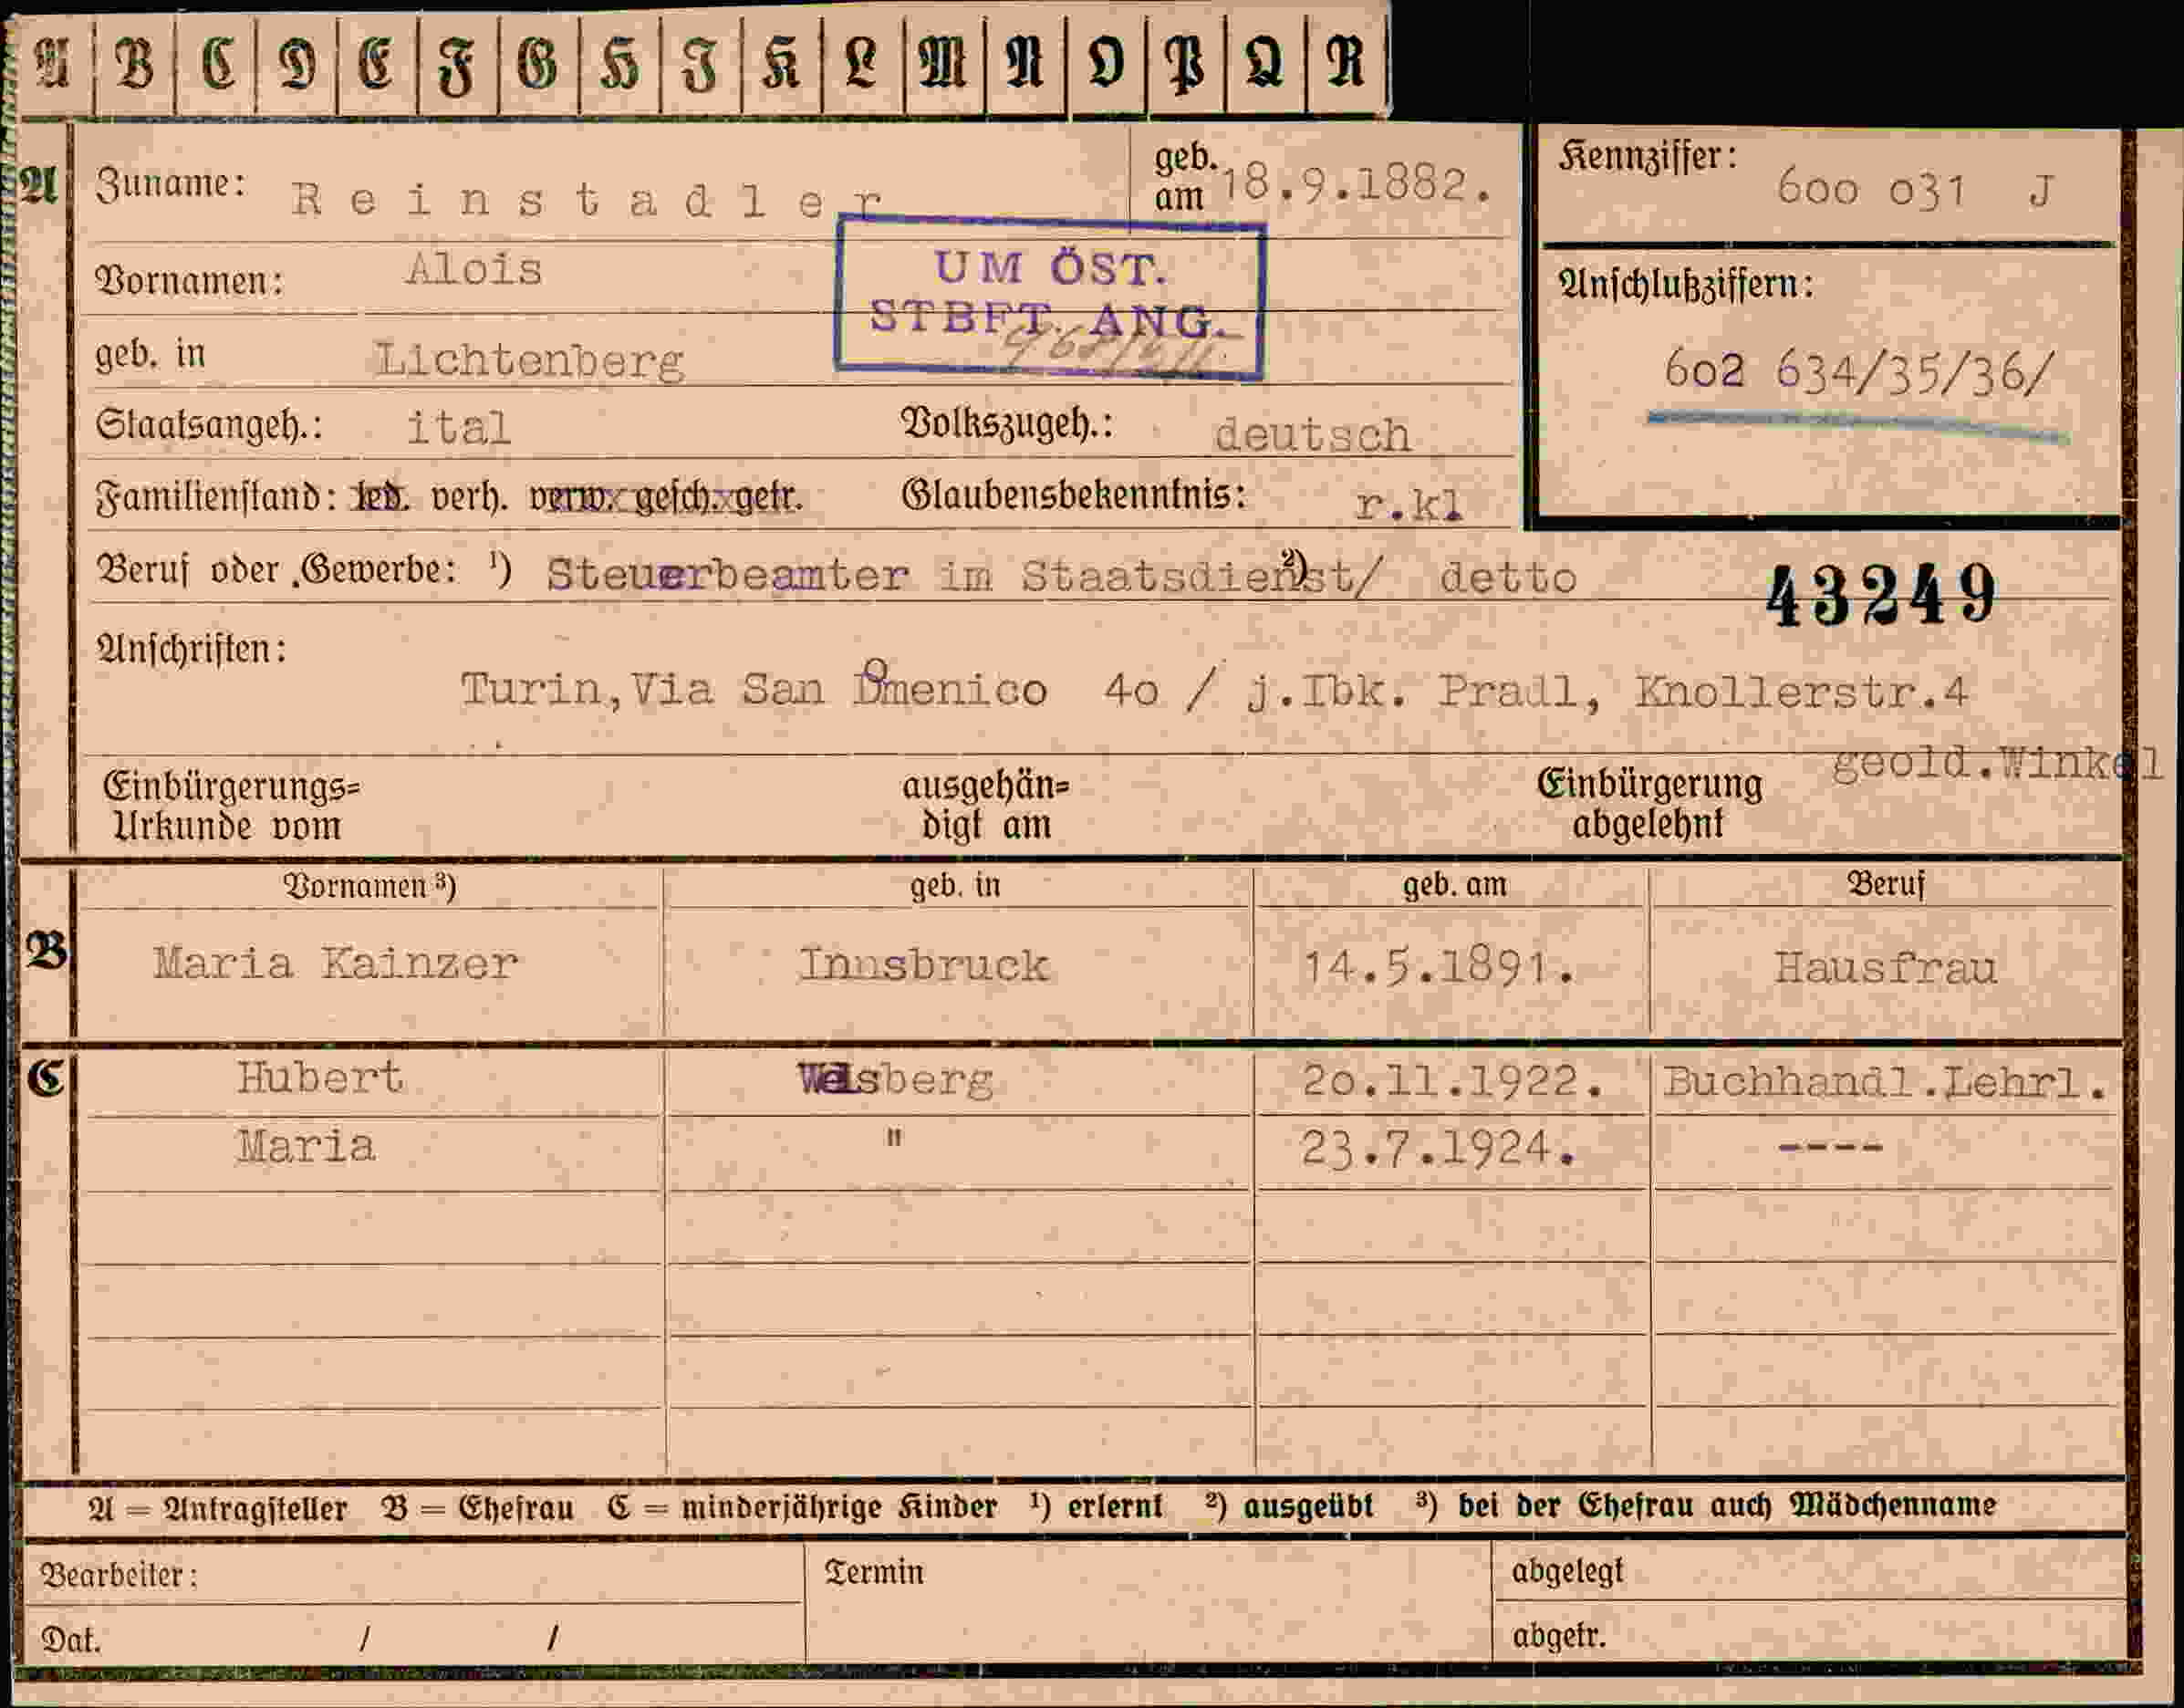 A B C D E F G H I K L M N O P Q R
A Zuname: Reinstadler geb. am 18.9.1882.
Kennziffer: 600 031 J
Vornamen: Alois
UM ÖST.
STBFT. ANG.
Anschlußziffern:
geb. in Lichtenberg
602 634/35/36/
Staatsangeh.: ital Volkszugeh.: deutsch
Familienstand: led. verh. verw. gesch. getr. Glaubensbekenntnis: r.kl
Beruf oder Gewerbe: ¹) Steuerbeamter im Staatsdienst/ ²) detto
43249
Anschriften:
Turin, Via San Domenico 4o / j.Ibk. Pradl, Knollerstr.4
geold.Winkel
Einbürgerungs=
Urkunde vom
ausgehän=
digt am
Einbürgerung
abgelehnt
Vornamen ³) geb. in geb. am Beruf
B Maria Kainzer Innsbruck 14.5.1891. Hausfrau
C Hubert Welsberg 2o.11.1922. Buchhandl.Lehrl.
Maria " 23.7.1924. ----
A = Antragsteller B = Ehefrau C = minderjährige Kinder ¹) erlernt ²) ausgeübt ³) bei der Ehefrau auch Mädchenname
Bearbeiter: Termin abgelegt
Dat. / / abgetr.